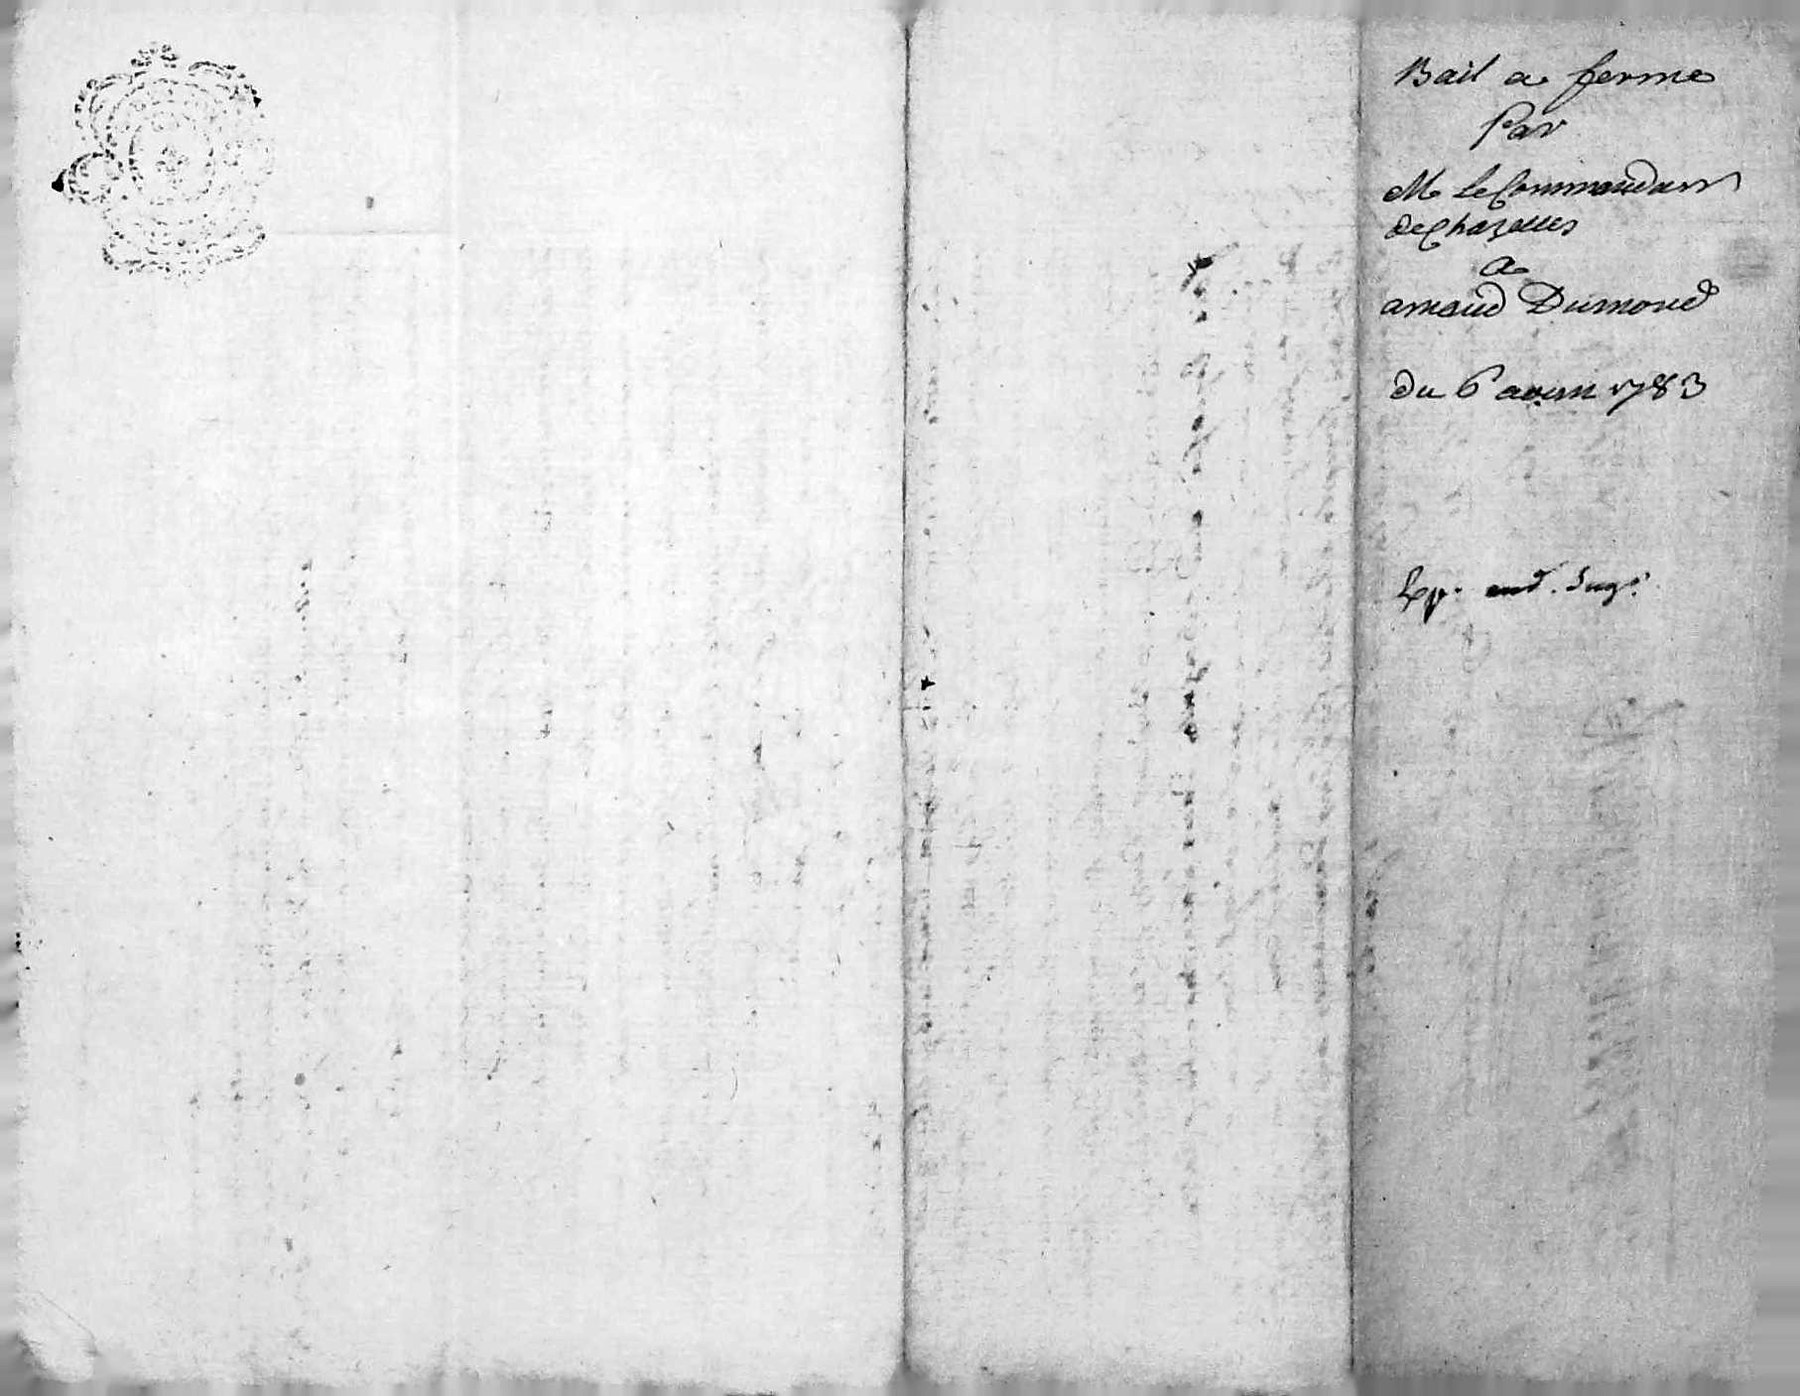 Bail a ferme
Par
Mr Le Commandeur
de Chazelles
a
arnaud Dumond
du 6 avril 1783